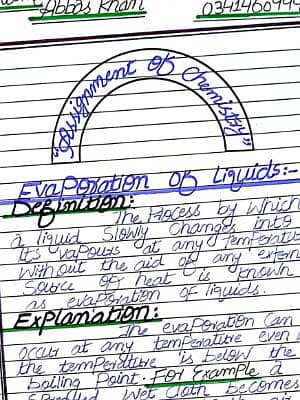 Abbas Khan 0341460999
"Assignment of Chemistry"
Evaporation of Liquids:-
Definition:
The Process by which
a liquid Slowly Changes into
Its vapours at any temperature
without the aid of any extern
Source of heat is known
as evaporation of liquids.
Explanation:
The evaporation Can
occur at any temperature even
the temperature is below the
boiling Point. For Example a
wet Cloth becomes